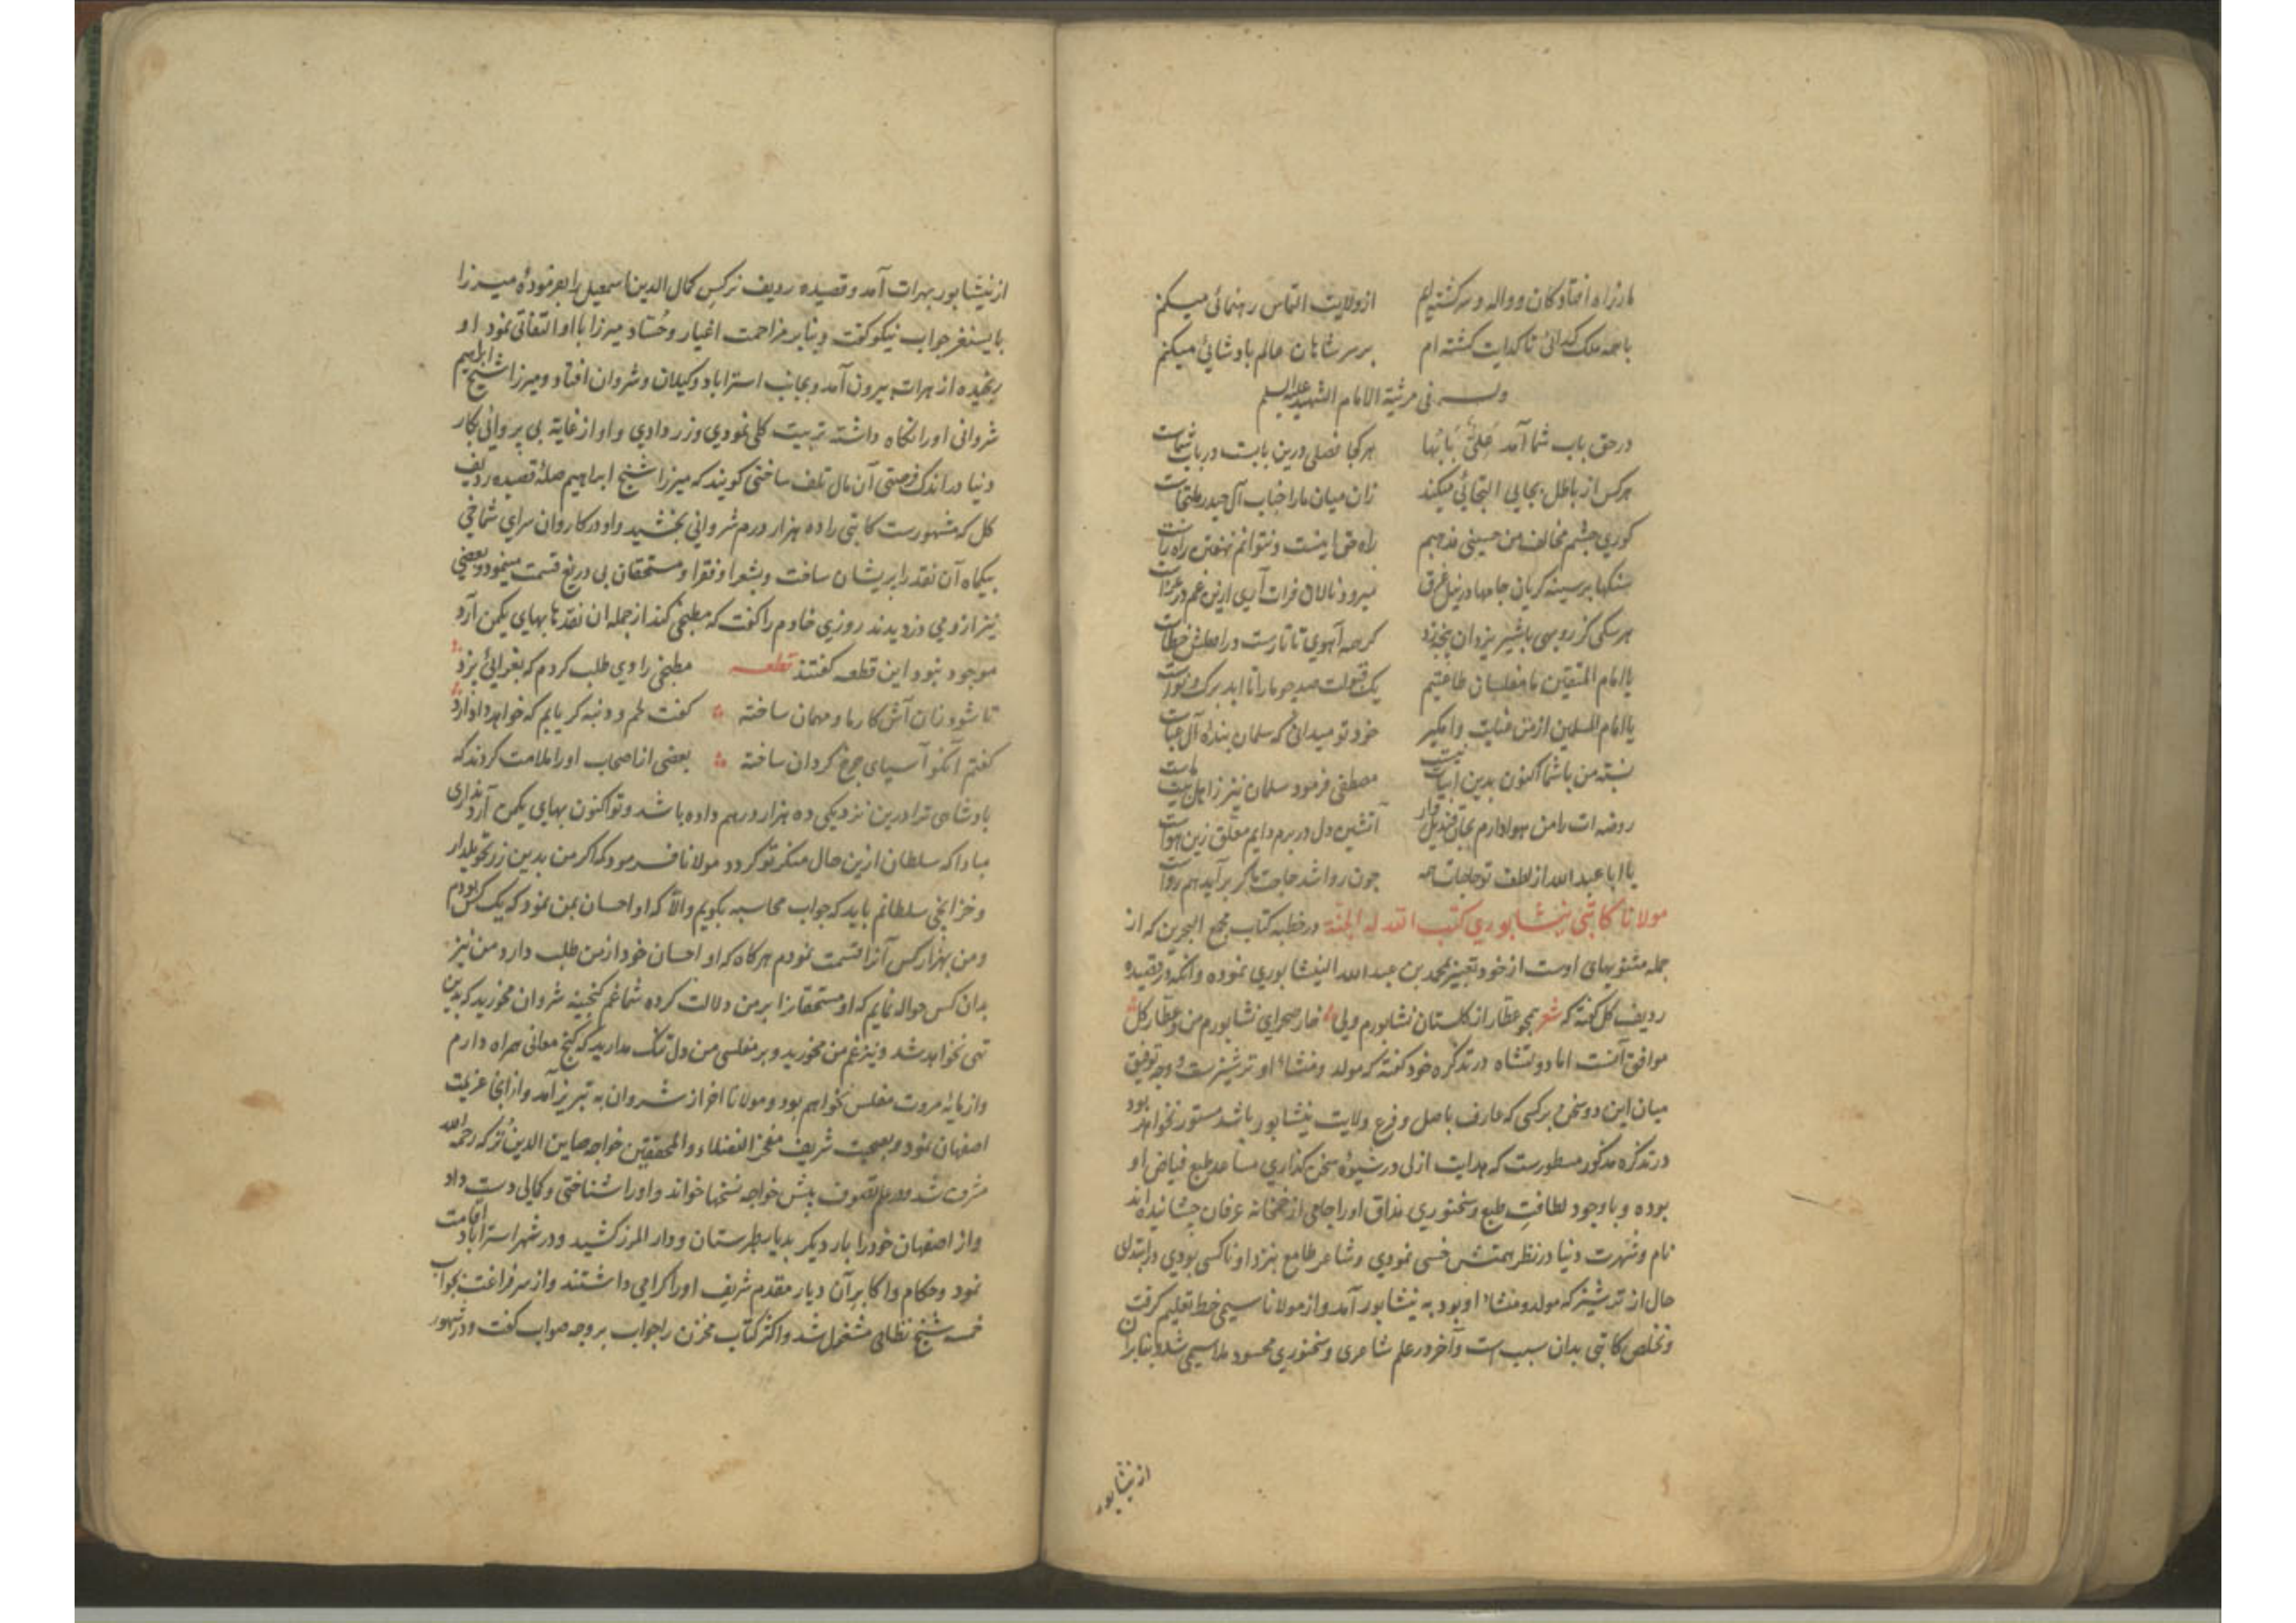 ما ز راه افتادگان و واله و سرگشته‌ایم از ولایت التماس رهنمائی میکنم
با همه ملک گدائی تا گدایت گشته ام بر سر شاهان عالم پادشائی میکنم
وله فی مرثیة الامام الشهید علیه السلم
در حق باب شما آمد علیّ بابُها هر کجا فصلی درین بابت در باب شماست
هرکس از باطل بجایی التجائی میکند زان میان ما را جناب آل حیدر ملتجاست
کوری چشم مخالف من حسینی مذهبم راه حق اینست و نتوانم نهفتن راه راست
سنگها بر سینه کریان جامها در نیل غرق میرود نالان فرات آری ازین غم در عزاست
هر سگی کز روبهی با شیر یزدان پنجه زد گر همه آهوی تاتارست در اصلش خطاست
یا امام المتقین ما مفلسان طاعتیم یک قبولت صد چو ما را تا ابد برگ و نواست
یا امام المسلمین از من عنایت وا مگیر خود تو میدانی که سلمان بندۀ آل عباست
نسبت من با شما اکنون بدین ابیات نیست مصطفی فرمود سلمان نیز ز اهل بیت ماست
روضه ات را من هوادارم بجان قندیل وار آتشین دل در برم دایم معلق زین هواست
یا ابا عبد الله از لطف تو حاجات همه چون روا شد حاجت ما گر برآید هم رواست
مولانا کاتبی نیشابوری کتب الله له الجنة در خطبه کتاب مجمع البحرین که از
جمله مثنویهای اوست از خود تعبیر بمحمد بن عبد الله النیشابوری نموده و آنکه در قصیده
ردیف گل گفته که شعر همچو عطار از گلستان نشابورم ولی خار صحرای نشابورم من و عطار گل
موافق آنست اما دولتشاه در تذکره خود گفته که مولد و منشاء او ترشیزست و وجه توفیق
میان این دو سخن بر کسی که عارف باصل و فرع ولایت نیشابور باشد مستور نخواهد بود
در تذکره مذکور مسطورست که هدایت ازلی در شیوۀ سخن گذاری مساعد طبع فیاض او
بوده و با وجود لطافت طبع و سخنوری مذاق او را جامی از خمخانه عرفان چشانیده اند
نام و شهرت دنیا در نظر همتش خسی نمودی و شاعر طامع بنزد او ناکسی بودی در ابتدای
حال از ترشیز که مولد و منشاء او بود به نیشابور آمد و از مولانا سیمی خط تعلیم گرفت
و تخلص کاتبی بدان سبب است و آخر در علم شاعری و سخنوری محسود ملا سیمی شد و بنابران
از نیشابور
از نیشابور بهرات آمد و قصیده ردیف نرکس کمال الدین اسمعیل را بفرمودۀ میرزا
بایسنغر جواب نیکو گفت و بنابر مزاحمت اغیار و حُسّاد میرزا با او التفاتی ننمود او
رنجیده از هرات بیرون آمد و بجانب استراباد و گیلان و شروان افتاد و میرزا شیخ ابراهیم
شروانی او را نگاه داشته تربیت کلی نمودی و زر دادی و او از غایة بی پروائی بکار
دنیا در اندک فرصتی آن مال تلف ساختی گویند که میرزا شیخ ابراهیم صله قصیده ردیف
گل که مشهورست کاتبی را ده هزار درم شروانی بخشید و او در کاروان سرای شماخی
بیکماه آن نقد را پریشان ساخت و بشعرا و فقرا و مستحقان بی دریغ قسمت مینمود و بعضی
نیز ازو می دزدیدند روزی خادم را گفت که مطبخی کند از جمله ان نقدها بهای یکمن آرد
موجود نبود این قطعه گفتند قطعه مطبخی را دی طلب کردم که بغرائی پزد
تا شود زان آش کار ما و مهمان ساخته گفت لحم و دنبه گر یابم که خواهد داد آرد
گفتم آنکو آسیای چرخ گردان ساخته بعضی از اصحاب او را ملامت کردند که
پادشاهی ترا درین نزدیکی ده هزار درهم داده باشد و تو اکنون بهای یکمن آرد نداری
مبادا که سلطان ازین حال منکر تو گردد مولانا فرمود که اگر من بدین زر تحویلدار
و خزانچی سلطانم باید که جواب محاسبه بگویم و الّا که او احسان بمن نمود که یک کس بودم
و من بهزار کس آنرا قسمت نمودم هرگاه که او احسان خود از من طلب دارد من نیز
بدان کس حواله نمایم که او مستحقانرا بر من دلالت کرده شما غم گنجینه شروان مخورید که بدین
تهی نخواهد شد و نیز غم من مخورید و بر مفلسی من دل تنگ مدارید که گنج معانی همراه دارم
و از مایۀ مروت مفلس نخواهم بود و مولانا اخر از شروان به تبریز آمد و از آنجا عزیمت
اصفهان نمود و بصحبت شریف مفخر الفضلاء و المحققین خواجه صاین الدین تُرکه رحمه الله
مشرف شد و در علم تصوف پیش خواجه نسخها خواند و او را شناختی و کمالی دست داد
و از اصفهان خود را بار دیگر بدیار طبرستان و دار المرز کشید و در شهر استراباد اقامت
نمود و حکام و اکابر آن دیار مقدم شریف او را گرامی داشتند و از سر فراغت بجواب
خمسه شیخ نظامی مشغول شد و اکثر کتاب مخزن را جواب بر وجه صواب گفت و در شهور